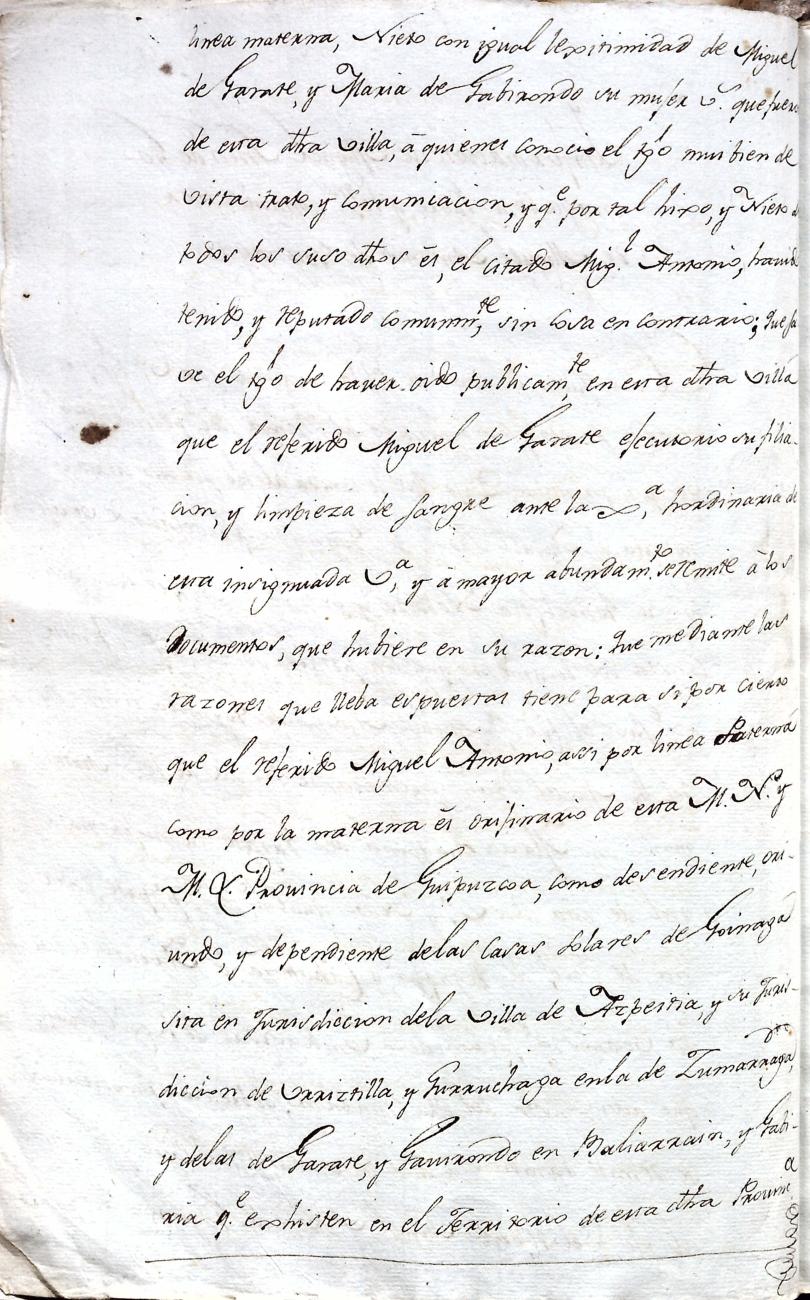 linea materna, Nieto con igual lexitimidad de Miguel
de Garate, y Maria de Gabirondo su mujer V.ˢ que fuero
de esta dtha villa, à quienes conocio el tgo mui bien de
vista trato, y comunicacion, y q.ᵉ por tal hixo, y Nieto d
todos los suso dthos és, el citado Mig.ˡ Antonio, havid
tenido, y reputado comunm,ᵗᵉ sin cosa en contrario; que sa
ve el tgo de haver oido publicam,ᵗᵉ en esta dtha villa
que el referido Miguel de Garate efecutorio su filia-
cion, y limpieza de sangre ante la ,ᵃ hordinaria de
esta insignuada V,ᵃ y à mayor abundam.ᵗᵒ se remite à los
Documentos, que hubiere en su razon: que mediante las
razones que lleba espuestas tiene para si por cierto
que el referido Miguel Antonio, assi por linea Paterna
como por la materna és orijinario de esta M. N. y
M. L. Provincia de Guipuzcoa, como desendiente, ori-
undo, y dependiente delas Casas Solares de Goinaga
sita en Jurisdiccion dela villa de Azpeitia, y su Juris-
diccion de Urriztilla, y Gurruchaga enla de Zumarraga,
y delas de Garate, y Gavirondo en Baliarrain, y Gabi-
ria q.ᵉ exhisten en el Territorio de esta dtha Provin.ᵃ